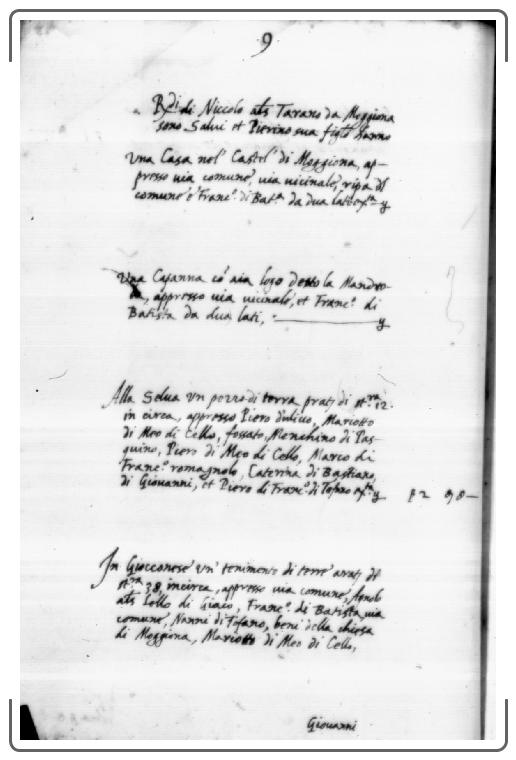 9
Rdi di Niccolo als Tarano da Moggiona
sono Salvi et Pierino sua figli hanno
Una Casa nel Castel di Moggiona, ap-
presso via comune, via vicinale, ripa del
comune e Franc.o di Bat.a da dua lati
Una Capanna cō aia logo detto la Mandro-
appresso via vicinale, et Franc.o di
Batista da dua lati,
Alla Selva un pezzo di terra prati di st.ra 12.
in circa, appresso Piero d'ulivo, Mariotto
di Meo di Cello, fossato, Menchino di Pas-
quino, Piero di Meo di Cello, Marco di
Franc.o romagnolo, Caterina di Bastiano
di Giovanni, et Piero di Franc.o di Tofano
In Gioconese un tenimento di terre arati di
st.ra 38 incirca, appresso via comune, Agnolo
als Lello di Giaco, Franc.o di Batista via
comune, Nanni di Tofano, beni della chiesa
di Moggiona, Mariotto di Meo di Cello,
Giovanni